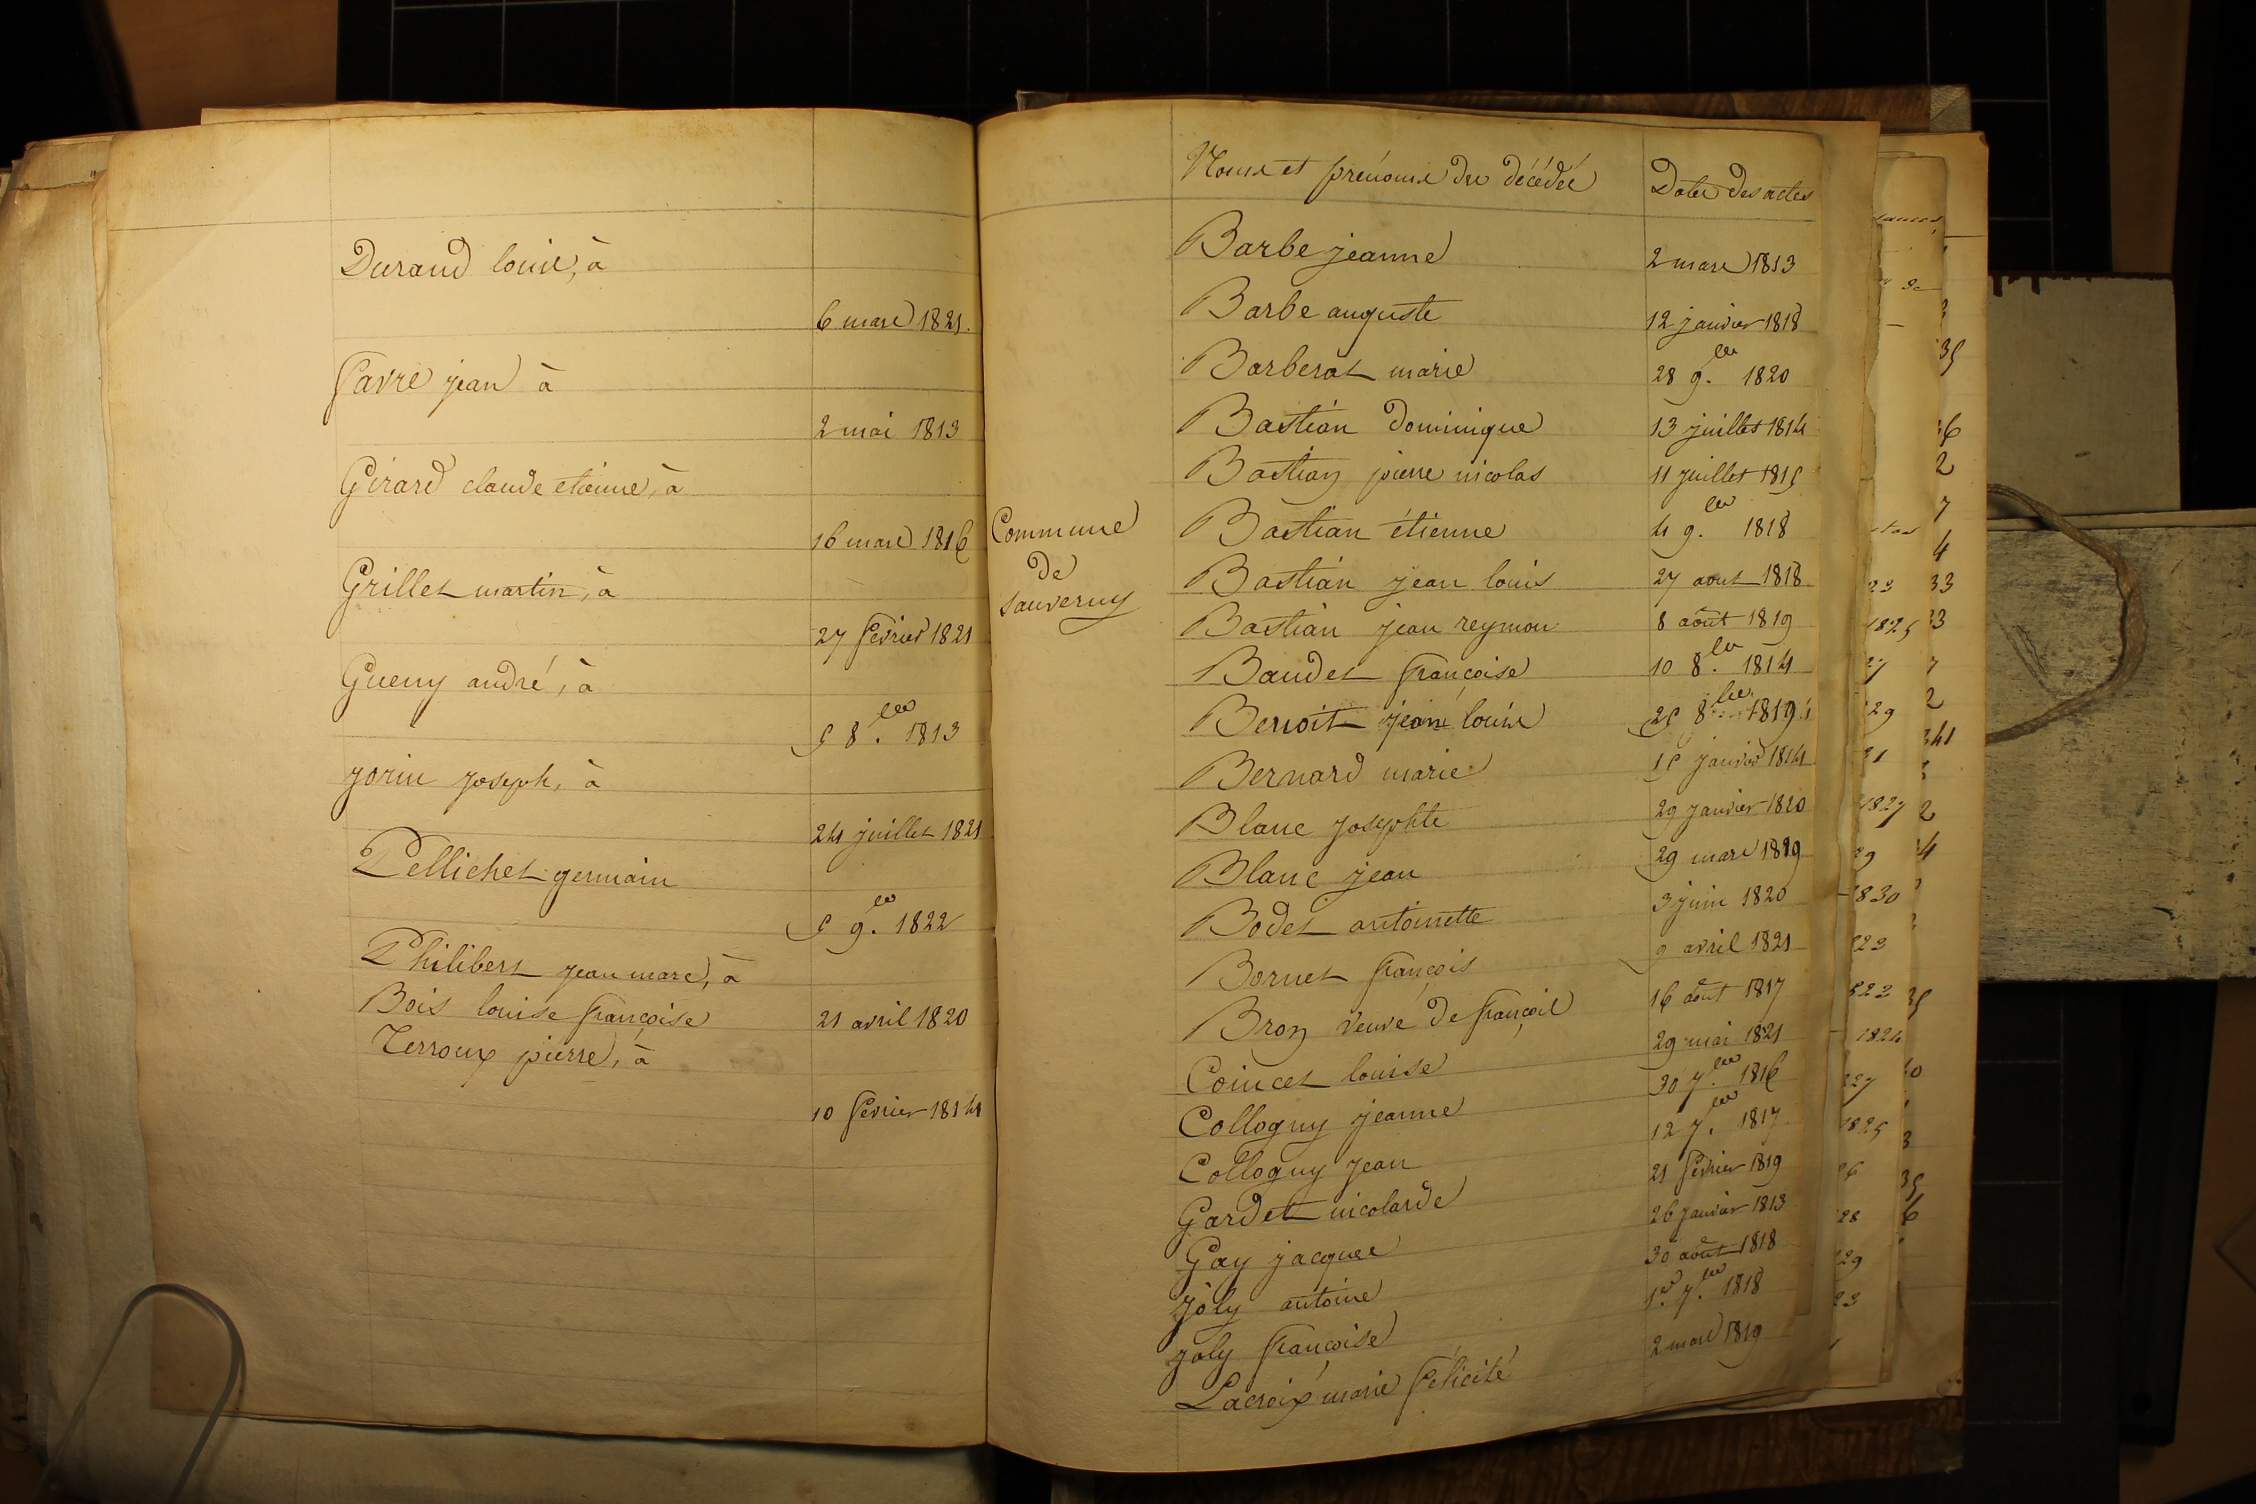 Durand louis, à
6 mars 1821.
favre jean à
2 mai 1813
Girard claude etienne, à
16 mars 1816
Grillet martin, à
27 fevrier 1821
Gueny andré, à
5 8.bre 1813
jorin joseph, à
24 juillet 1821
Pellichet germain
5 9.bre 1822
Philibert jean marc, à
Bois louise françoise
21 avril 1820
Terroux pierre, à
10 fevrier 1814
Noms et prénoms des décédés Dates des actes
Barbe jeanne 2 mars 1813
Barbe auguste 12 janvier 1818
Barberat marie 28 9.bre 1820
Bastian dominique 13 juillet 1814
Bastian pierre nicolas 11 juillet 1815
Commune
de
sauverny
Bastian étienne 4 9.bre 1818
Bastian jean louis 27 aout 1818
Bastian jean reymon 8 août 1819
Baudet françoise 10 8.bre 1814
Benoit jean louis 25 8.bre 1819
Bernard marie 15 janvier 1814
Blanc josephte 29 janvier 1820
Blanc jean 29 mars 1819
Bodet antoinette 3 juin 1820
Bornet françois 9 avril 1821
Bron veuve de françois 16 août 1817
Coincet louise 29 mai 1821
Collogny jeanne 30 7.bre 1816
Collogny jean 12 7.bre 1817
Gardet nicolarde 21 fevrier 1819
Gay jacques 26 janvier 1813
joly antoine 30 août 1818
joly françoise 1.er 7.bre 1818
Lacroix marie félicité 2 mars 1819